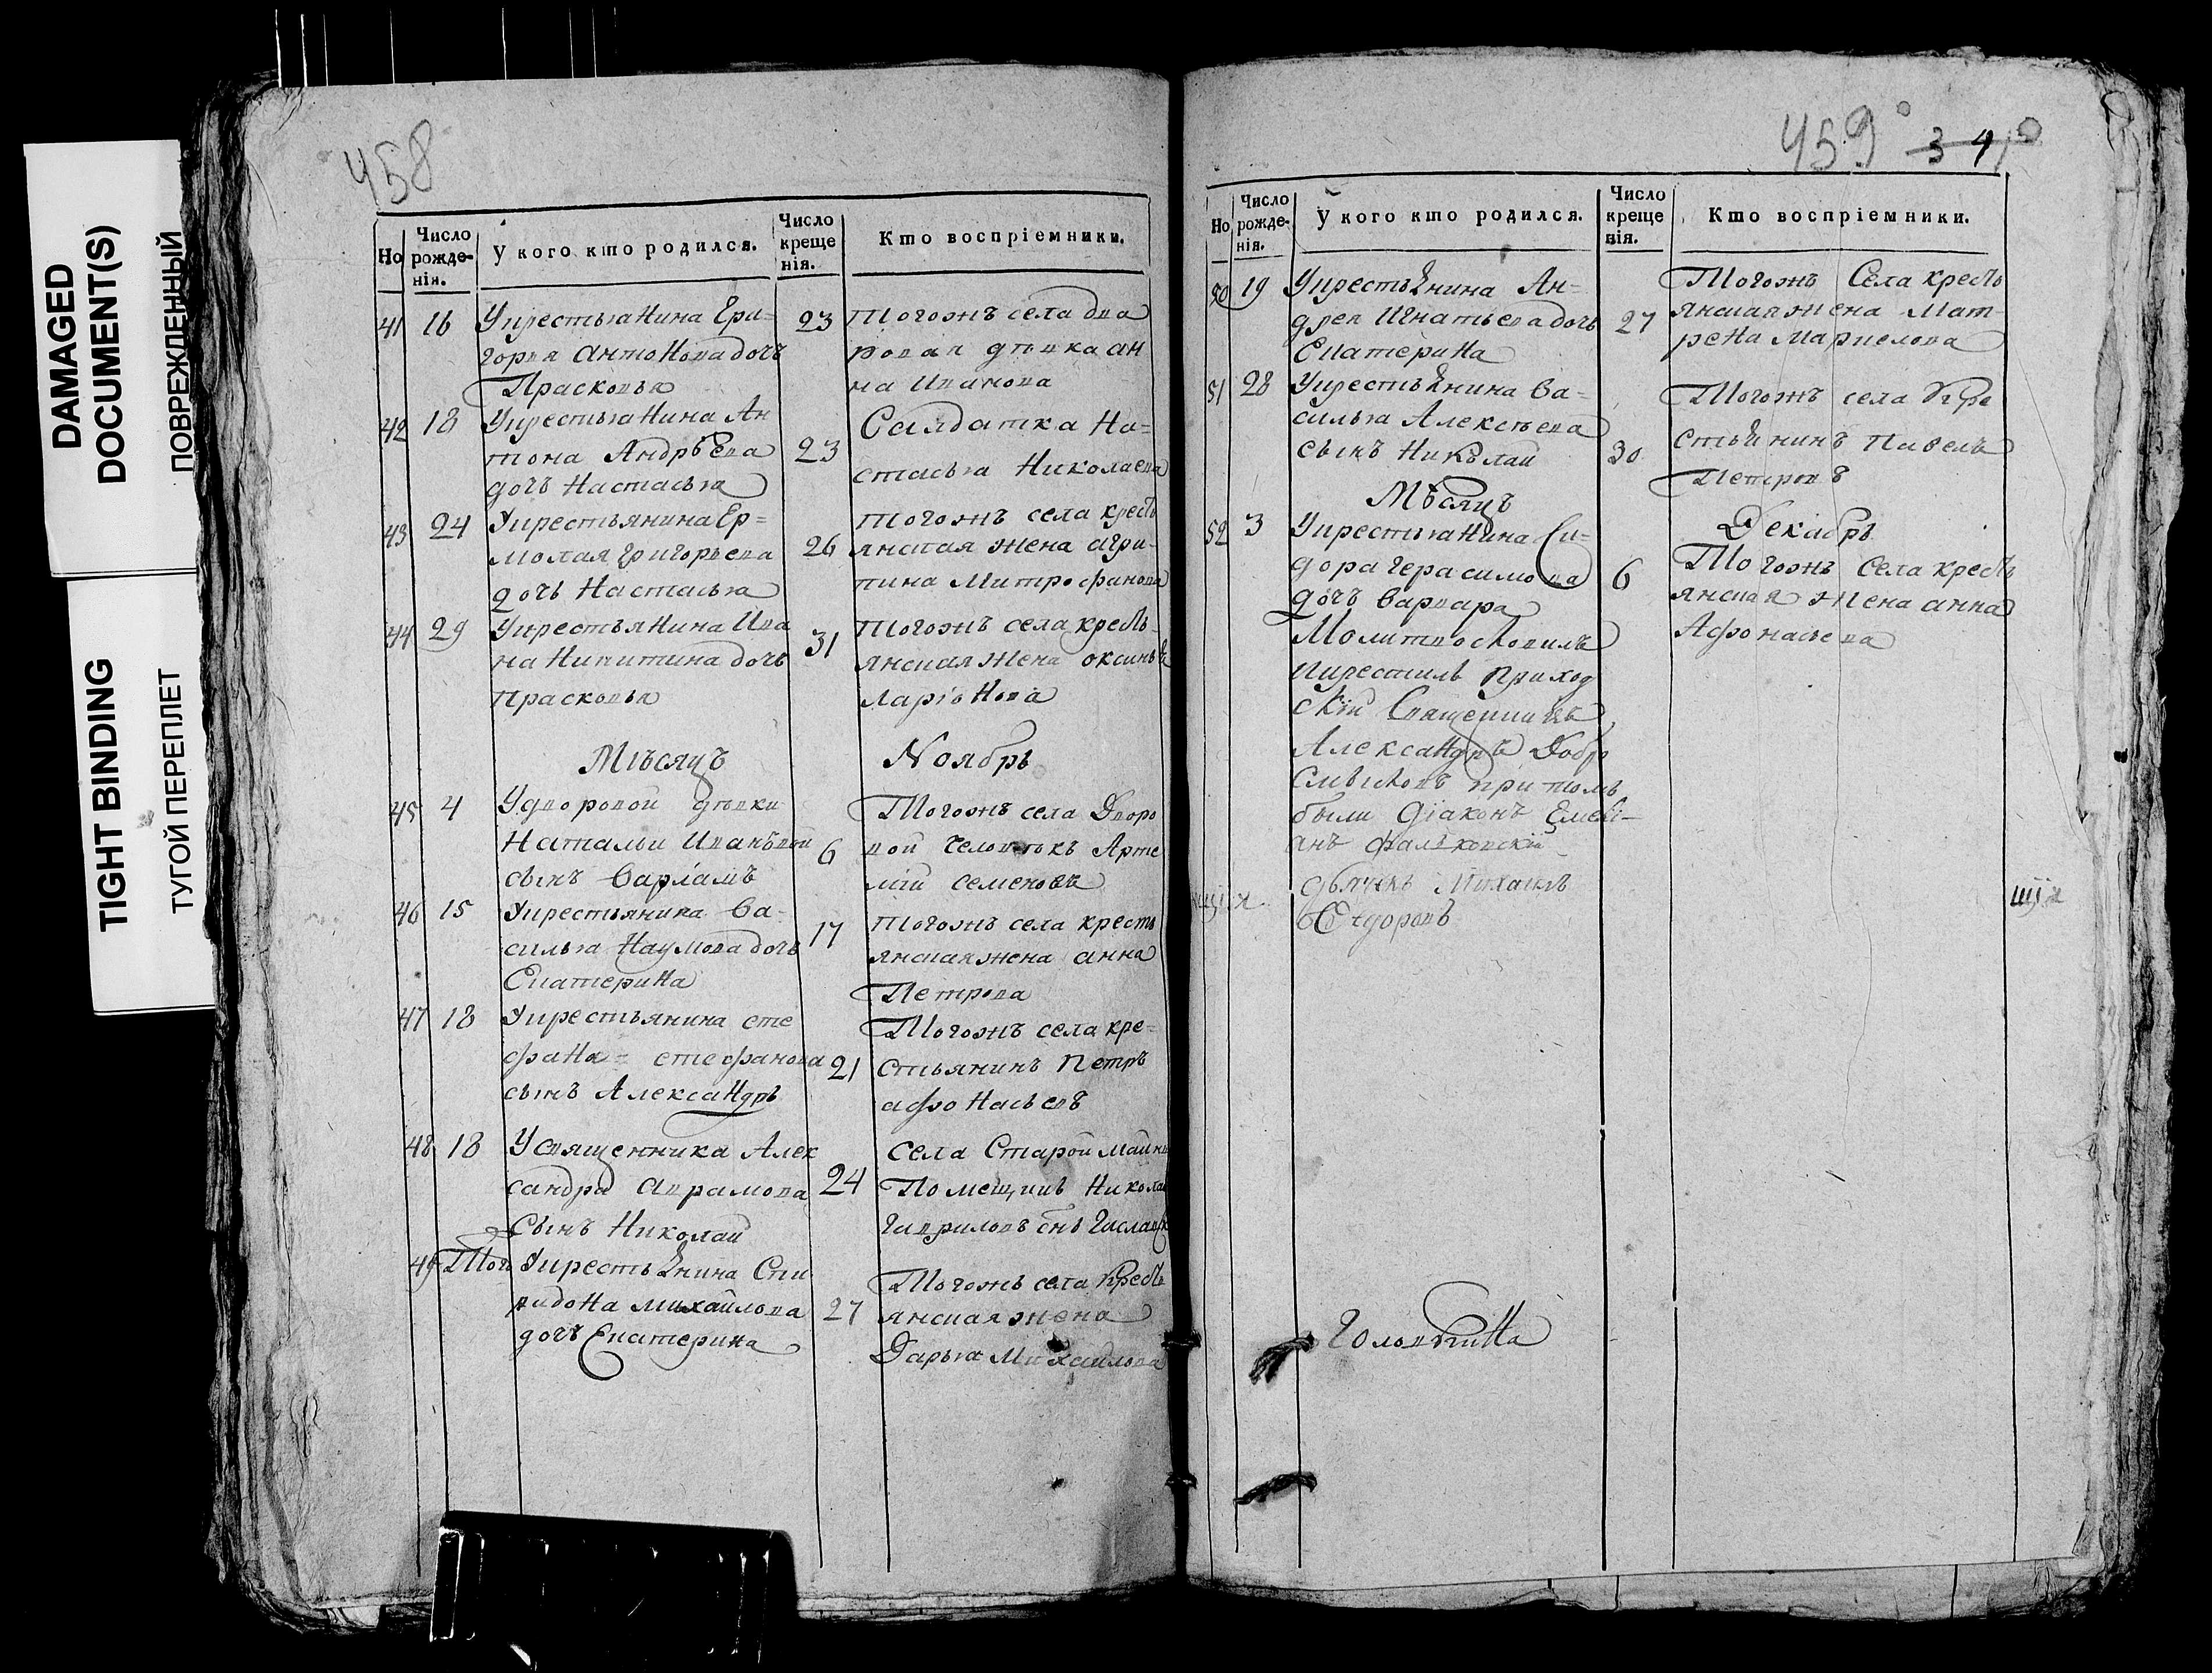 DAMAGED
DOCUMENT(S)
ПОВРЕЖДЕННЫЙ
TIGHT BINDING
ТУГОЙ ПЕРЕПЛЕТ
458
Но
Число рожденія.
У кого кто родился.
Число крещенія.
Кто воспріемники.
41 16 Укрестьянина Гри=
горья Антонова дочь
Прасковья
23 Тогожъ села дво
ровая дѣвка ан
на Иванова
42 18 Укрестьянина Ан
тона Андрѣева
дочь Настасья
23 Салдатка На=
стасья Николаева
43 24 Укрестьянина Ер=
молая григорьева
дочь Настасья
26 Тогожъ села кресть
янская жена агри-
пина Митрофанова
44 29 Укрестьянина Ива
на Никитина дочь
Прасковья
31 Тогожъ села кресть-
янская жена оксинья
Ларіонова
Мѣсяцъ Ноябрь
45 4 Удворовой дѣвки
Натальи Иванѣвой
сынъ Варламъ
6 Тогожъ села Дворо
вой человѣкъ Арте
мій семеновъ
46 15 Укрестьянина Ва-
силья Наумова дочь
Екатерина
17 Тогожъ села кресть
янская жена анна
Петрова
47 18 Укрестьянина сте
фана= стефанова
сынъ Александръ
21 Тогожъ села кре=
стьянинъ Петръ
афонасьевъ
48 18 Усвященника Алек
сандра Аврамова
Сынъ Николай
24 села Старой майны
Помещикъ Николай
Гавриловъ снъ
49 Тогожъ Укрестьянина Спи
ридона михайлова
дочь Екатерина
27 Тогожъ села кресть
янская жена
Дарья Михайлова
459 341
Но
Число рожденія.
У кого кто родился.
Число крещенія.
Кто воспріемники.
50 19 Укрестьянина Ан=
дрея Игнатьева дочь
Екатерина
27 Тогожъ Села кресть
янская жена Мат-
рена Маркелова
51 28 Укрестьянина Ва=
силья Алексѣева
сынъ Николай
30 Тогожъ села кре
стьянинъ Павелъ
Петровъ
Мѣсяцъ Декабрь
52 3 Укрестьянина Си=
дора герасимова
дочь Варвара
6 Тогожъ Села кресть
янская жена анна
Афонасьева
Молитвословилъ
икрестилъ приход
скій Священникъ
Александръ Добро
смысловъ притомъ
были діаконъ Емелі-
анъ
дьячокъ Михаилъ
Федоровъ
Головкина